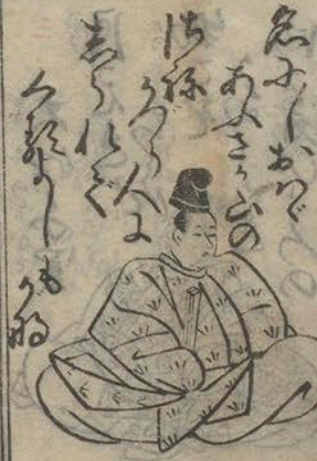 名にしおはゞ
あふさか山の
さね
かづら人に
しられで
くるよしも
がな